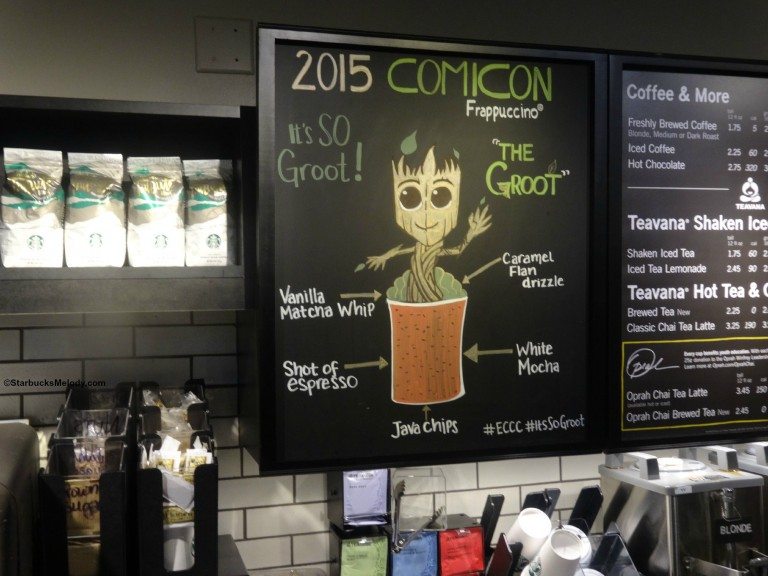 2015 COMICON
Frappuccino®
It's SO
Groot!
"THE
GROOT"
Caramel
Flan
drizzle
Vanilla
Matcha Whip
White
Mocha
Shot of
espresso
Java chips
#ECCC #ItsSoGroot
Coffee & More
tall
12 fl oz cal
Freshly Brewed Coffee 1.75 5
Blonde, Medium or Dark Roast
Iced Coffee 2.25 60
Hot Chocolate 2.75 320
TEAVANA
Teavana® Shaken Ice
tall
12 fl oz cal
Shaken Iced Tea 1.75 60
Iced Tea Lemonade 2.45 90
Teavana® Hot Tea &
Brewed Tea New 2.25 0
Classic Chai Tea Latte 3.25 190
Every cup benefits youth education.
Oprah
Oprah Chai Tea Latte 3.45 250
Oprah Chai Brewed Tea New 2.45 0
©StarbucksMelody.com
Brown
Sugar
BLONDE